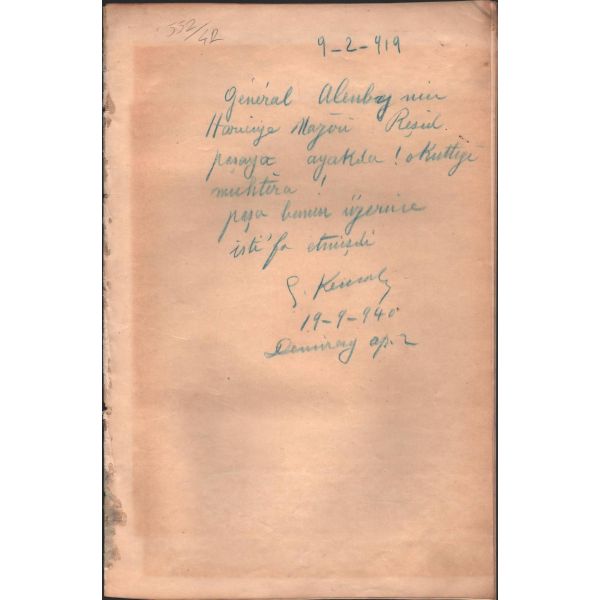 552/42
9-2-919
Général Alenby nin
Hariciye Nazırı Reşid
paşaya ayakda! okuttığı
muhtıra!
paşa bunun üzerine
isti'fa etmişdi
19-9-940
ap. 2